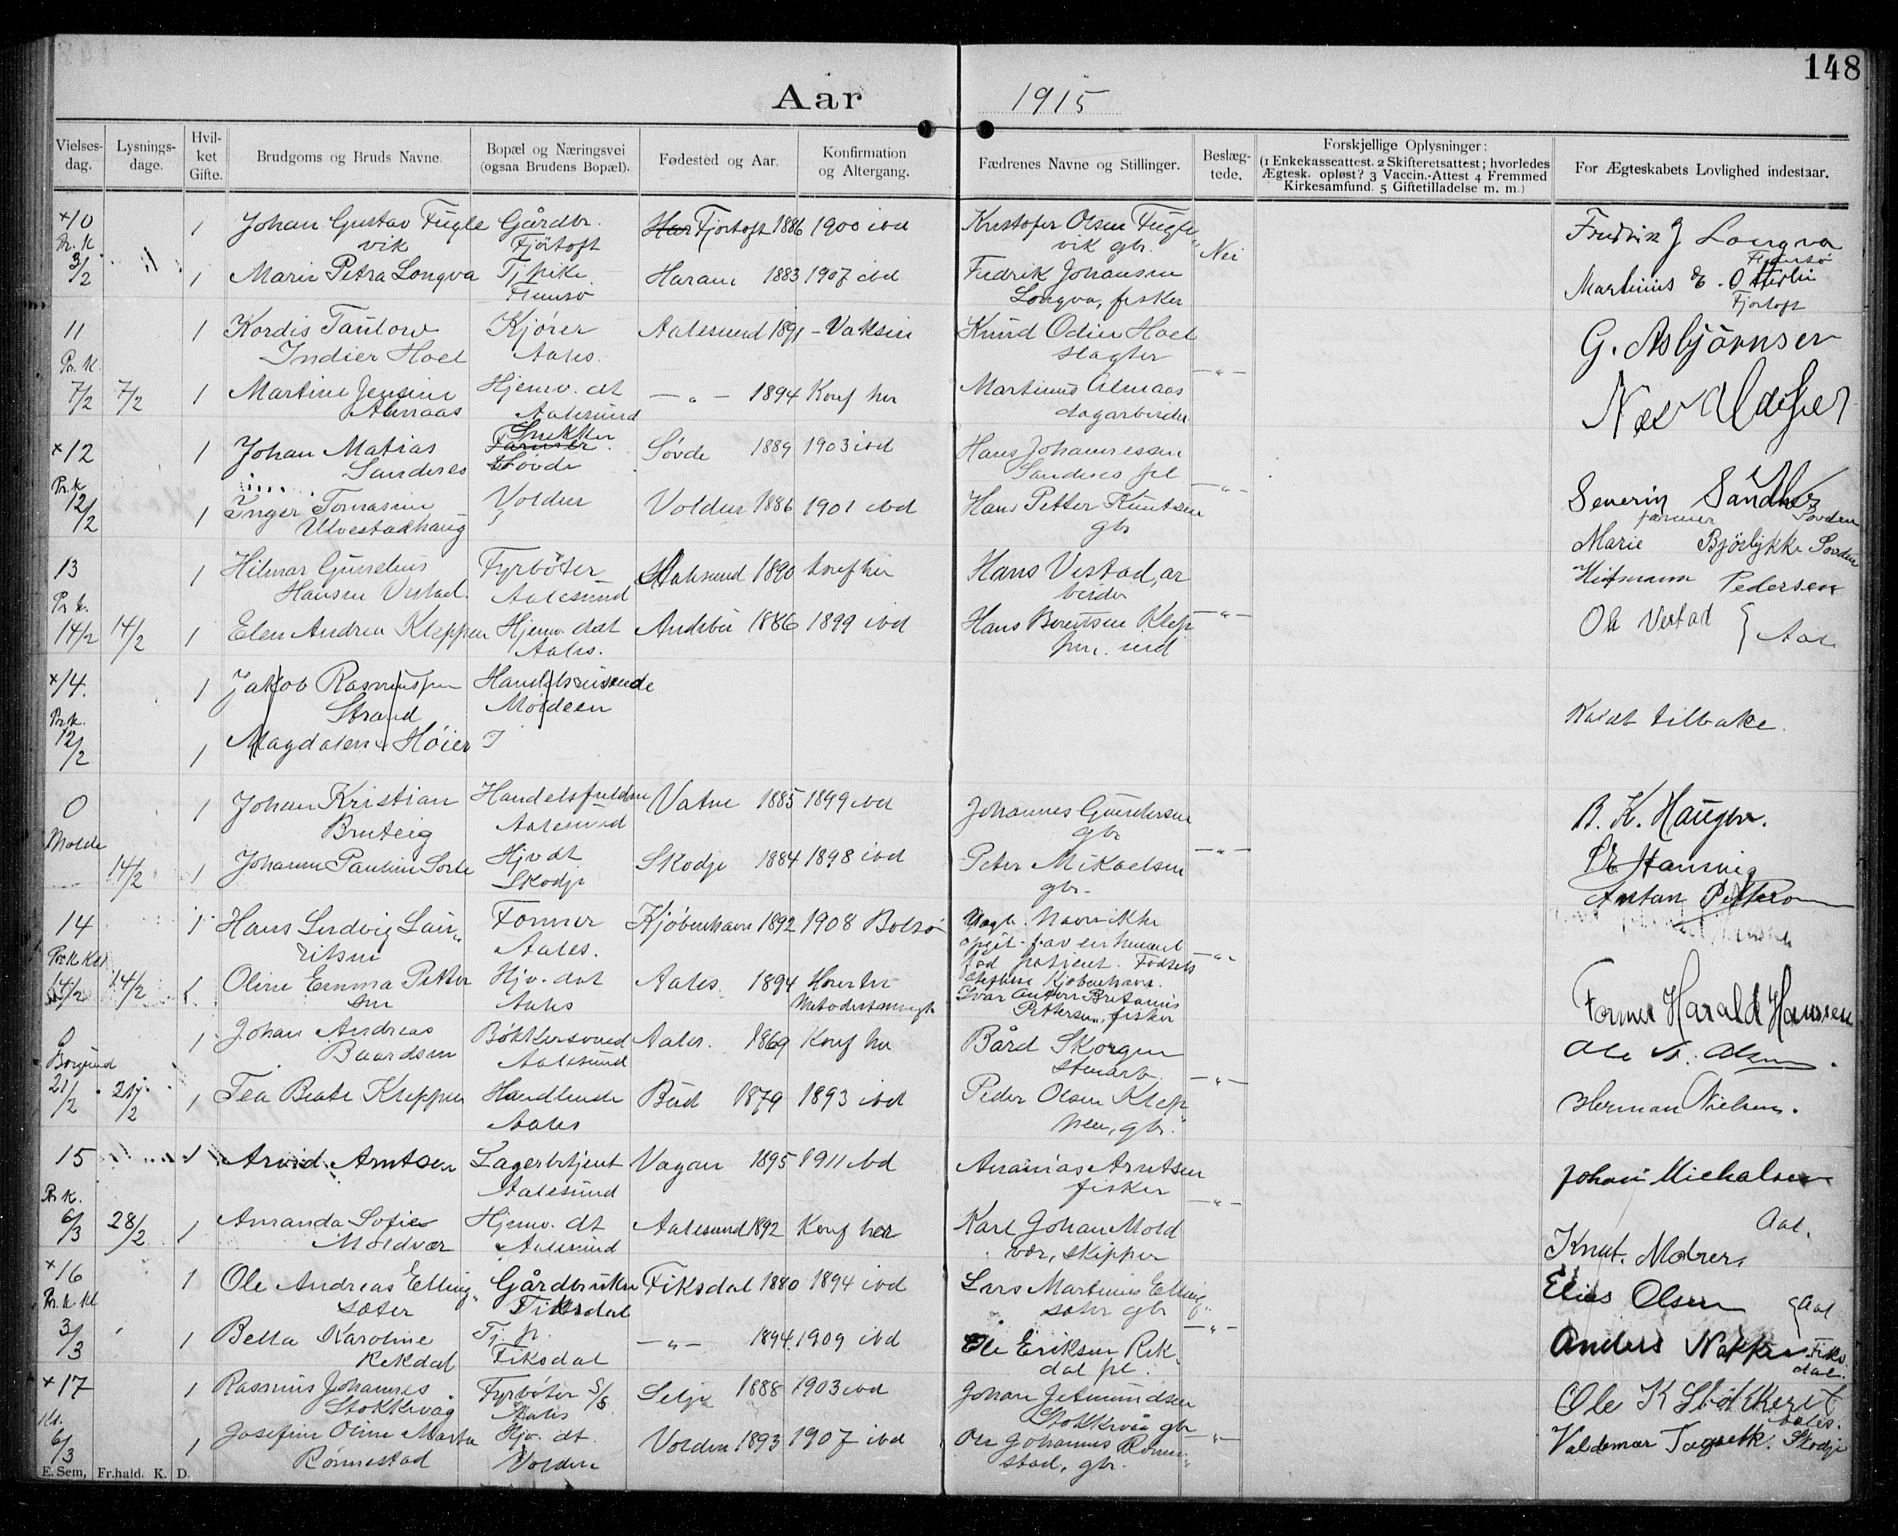 148
Aar 1915
Vielses-dag. Lysnings-dage. Hvil-ket Gifte. Brudgoms og Bruds Navne. Bopæl og Næringsvei (ogsaa Brudens Bopæl). Fødested og Aar. Konfirmation og Altergang. Fædrenes Navne og Stillinger. Beslæg-tede. Forskjellige Oplysninger: (1 Enkekasseattest. 2 Skifteretsattest; hvorledes Ægtesk. opløst? 3 Vaccin.-Attest 4 Fremmed Kirkesamfund. 5 Giftetilladelse m. m.) For Ægteskabets Lovlighed indestaar.
×10 1 Johan Gustav Fugle Gårdbr. Har Fjortoft 1886 1900 ibd Kristofer Olsen Fugle
Pr. K vik Fjörtoft vik gbr. Nei
3/2 1 Marie Petra Longva Tj. pike Haram 1883 1907 ibd Fredrik Johansen
Longva, fisker
Fredrik J Longva
Martinus
Fjortoft
11 1 Kordis Taulow Kjører Aalesund 1891 - Vaksin Knud Odin Hoel
Pr. K. Indier Hoel Aales. slagter
7/2 7/2 1 Martine Jensine Hjemv. dt — " — 1894 Konf her Martinus Almaas — " —
Almaas Aalesund dagarbeider
G. Asbjörnsen
×12 1 Johan Matias Snekker Søvde 1889 1903 ibd Hans Johannessen
Sandnes Farmer Søvde Sandnes pl
Pr. K
12/2 1 Inger Tomasine Volden Volden 1886 1901 ibd Hans Petter Knutsen — " —
Ulvestadhaug gbr
Severin Sandnes
farmer Søvden
Marie Bjørlykke Søvden
13 1 Hilmar Gunelius Fyrbøter Aalesund 1890 konf her Hans Vestad, ar
Pr. K. Hansen Vestad. Aalesund beider
14/2 14/2 1 Elen Andrea Kleppen Hjemv. dat Andebu 1886 1899 ibd Hans Berntsen Klep — " —
Aales. pen. ind
Pedersen
Ole Vestad } Aal
×14. 1 Jakob Rasmussen Handelsreisende
Pr. K. Strand Molde
12/2 1 Magdalene Høier
Kaldt tilbake.
0 1 Johan Kristian Handelsfuldm Vatne 1885 1899 ibd Johannes Gundersen
Molde Bruteig Aalesund gbr
14/2 1 Johanne Pauline Sorte Hjv dt Skodje 1884 1898 ibd Peter Mikaelsen — " —
Skodje gbr.
B. K. Haugen.
Anton Petterson
14 1 Hans Ludvig Lau- Former Kjøbenhavn 1892 1908 Bolsø Navn ikke
ritsen Aales.
14/2 14/2 1 Oline Emma Petter Hjv. dat Aales 1894 — " —
sen Aales Metodistmenigh Ivar Anton Bretanus
Pettersen, fisker
Former Harald Hanssen
0 1 Johan Andreas Bøkkersvend Aales. 1869 Konf her Bård Skorgen
Borgund Baardsen Aalesund stenarb.
21/2 21/2 1 Tea Beate Kleppen Handlende Bud 1879 1893 ibd Peder Olsen Klep — " —
Aales pen, gbr.
Ole A. Olsen
Herman Nielsen.
15 1 Arvid Arntsen Lagerbetjent Vagan 1895 1911 ibd Ananias Arntsen
Pr. K. Aalesund fisker
6/3 28/2 1 Amanda Sofie Hjemv. dt Aalesund 1892 Konf her Karl Johan Mold — " —
Moldvær Aalesund vær, skipper
Johan Michalsen
Aal.
Knut
×16 1 Ole Andreas Elling- Gårdbruker Fiksdal 1880 1894 ibd Lars Martinus Elling
Pr. K. Kl sæter Fiksdal sæter gbr
3/3 1 Betta Karoline Tj. p. — " — 1894 1909 ibd Ole Eriksen Rek- — " —
Rekdal Fiksdal dal pl.
Elias Olsen Aal
Anders Fiks-
dal.
×17 1 Rasmus Johannes Fyrbøter S/S Selje 1888 1903 ibd Johan
Kl. Stokkevåg Aales Stokkevåg gbr
6/3 1 Josefine Oline Marta Hjv. dt. Volden 1893 1907 ibd Ole Johannes Rønne- — " —
Rønnestad Volden stad, gbr.
Ole K
Aales.
Valdemar Skodje
E. Sem, Fr.hald. K. D.